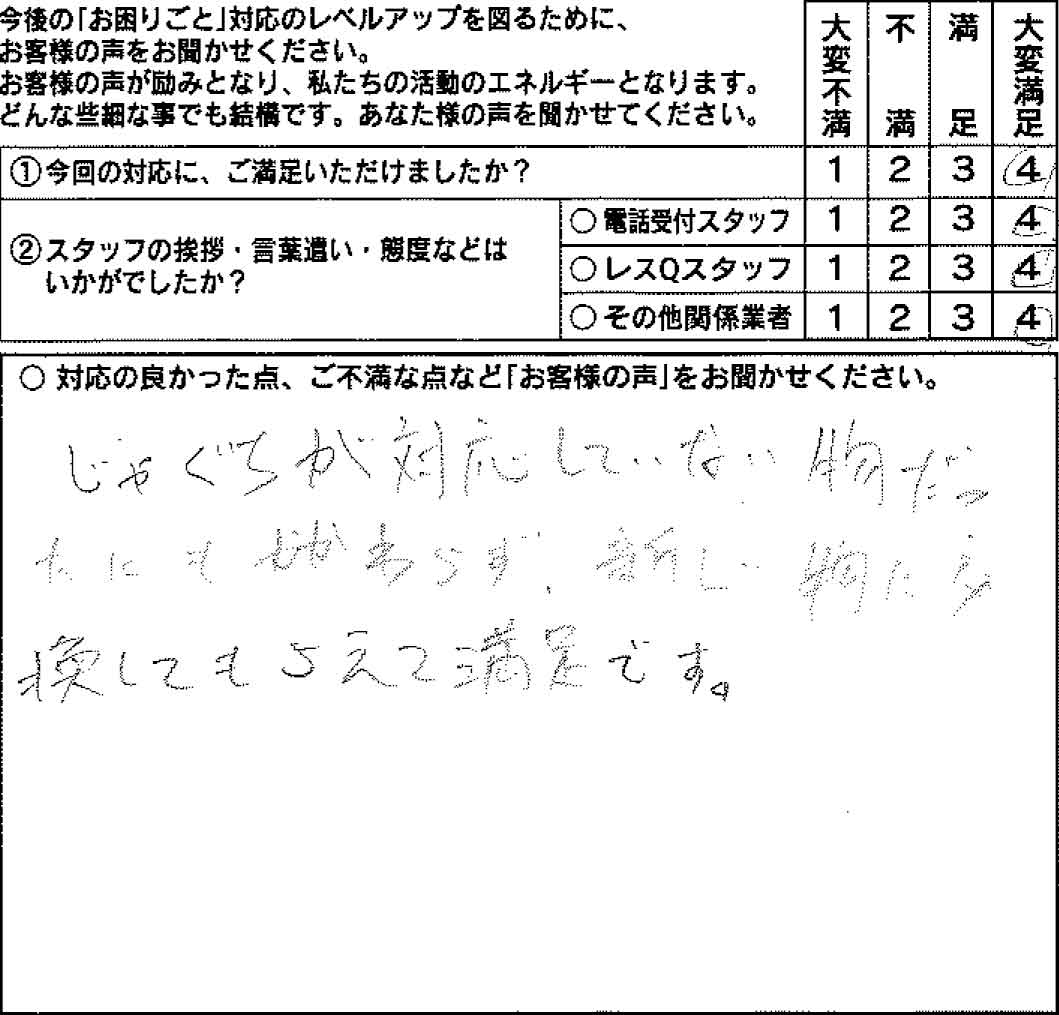 今後の「お困りごと」対応のレベルアップを図るために、
お客様の声をお聞かせください。
お客様の声が励みとなり、私たちの活動のエネルギーとなります。
どんな些細な事でも結構です。あなた様の声を聞かせてください。
大変不満 不満 満足 大変満足
①今回の対応に、ご満足いただけましたか？ 1 2 3 4
②スタッフの挨拶・言葉遣い・態度などは
いかがでしたか？
○電話受付スタッフ 1 2 3 4
○レスQスタッフ 1 2 3 4
○その他関係業者 1 2 3 4
○ 対応の良かった点、ご不満な点など「お客様の声」をお聞かせください。
じゃぐちが対応していない物だっ
たにも拘わらず、新しい物に交
換してもらえて満足です。